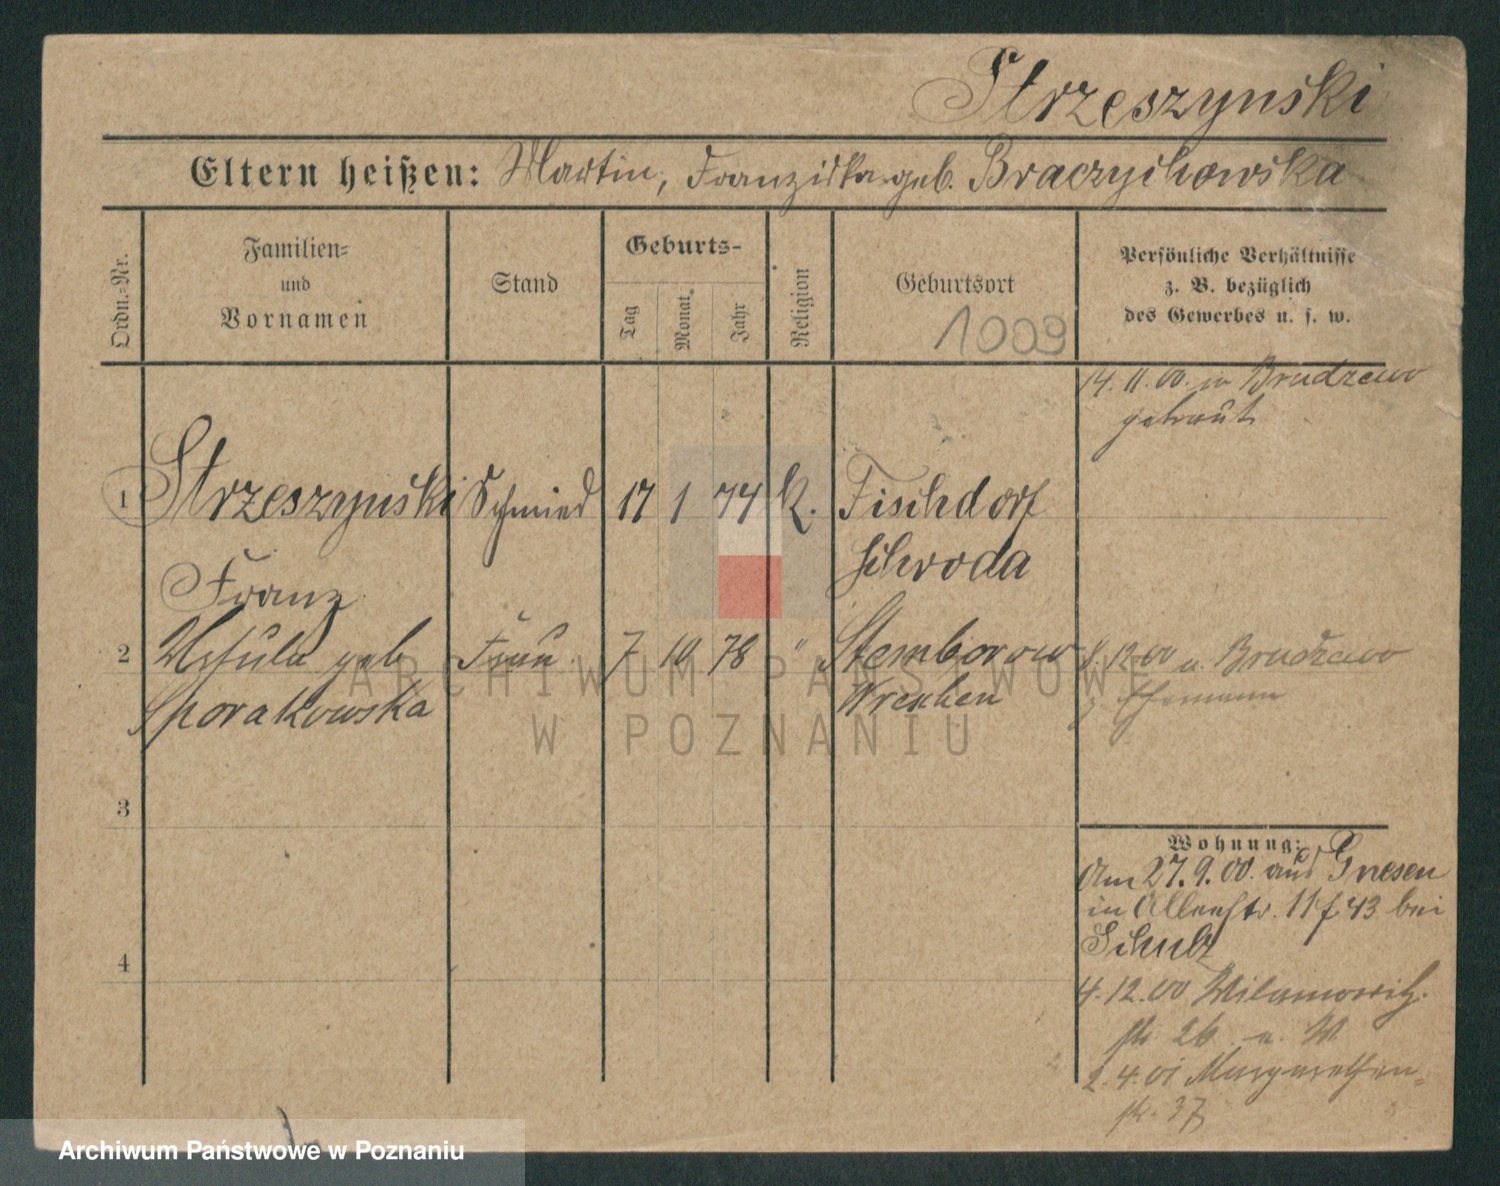 Strzeszynski
Eltern heißen: Martin, Franziska geb. Braczychowska
Ordn.-Nr.
Familien-
und
Vornamen
Stand
Geburts-
Tag
Monat
Jahr
Religion
Geburtsort
1009
Persönliche Verhältnisse
z. B. bezüglich
des Gewerbes u. s. w.
14. 11. 00. in Brudzewo
getraut
1 Strzeszynski Schmied 17 1 74 k. Fischdorf
Schroda
Franz
2 Ursula geb Frau 7 10 78 " Stemborowo 8. 12 00 v. Brudzewo
Sporakowska Wreschen z. Ehemann
3
4
Wohnung:
Am 27. 9. 00. aus Gnesen
in Alleestr. 11 f. 43 bei
Schulz
4. 12. 00 Wilamowitz-
str 26 W.
2. 4. 01 Margarethen-
str. 37
ARCHIWUM PAŃSTWOWE
W POZNANIU
Archiwum Państwowe w Poznaniu